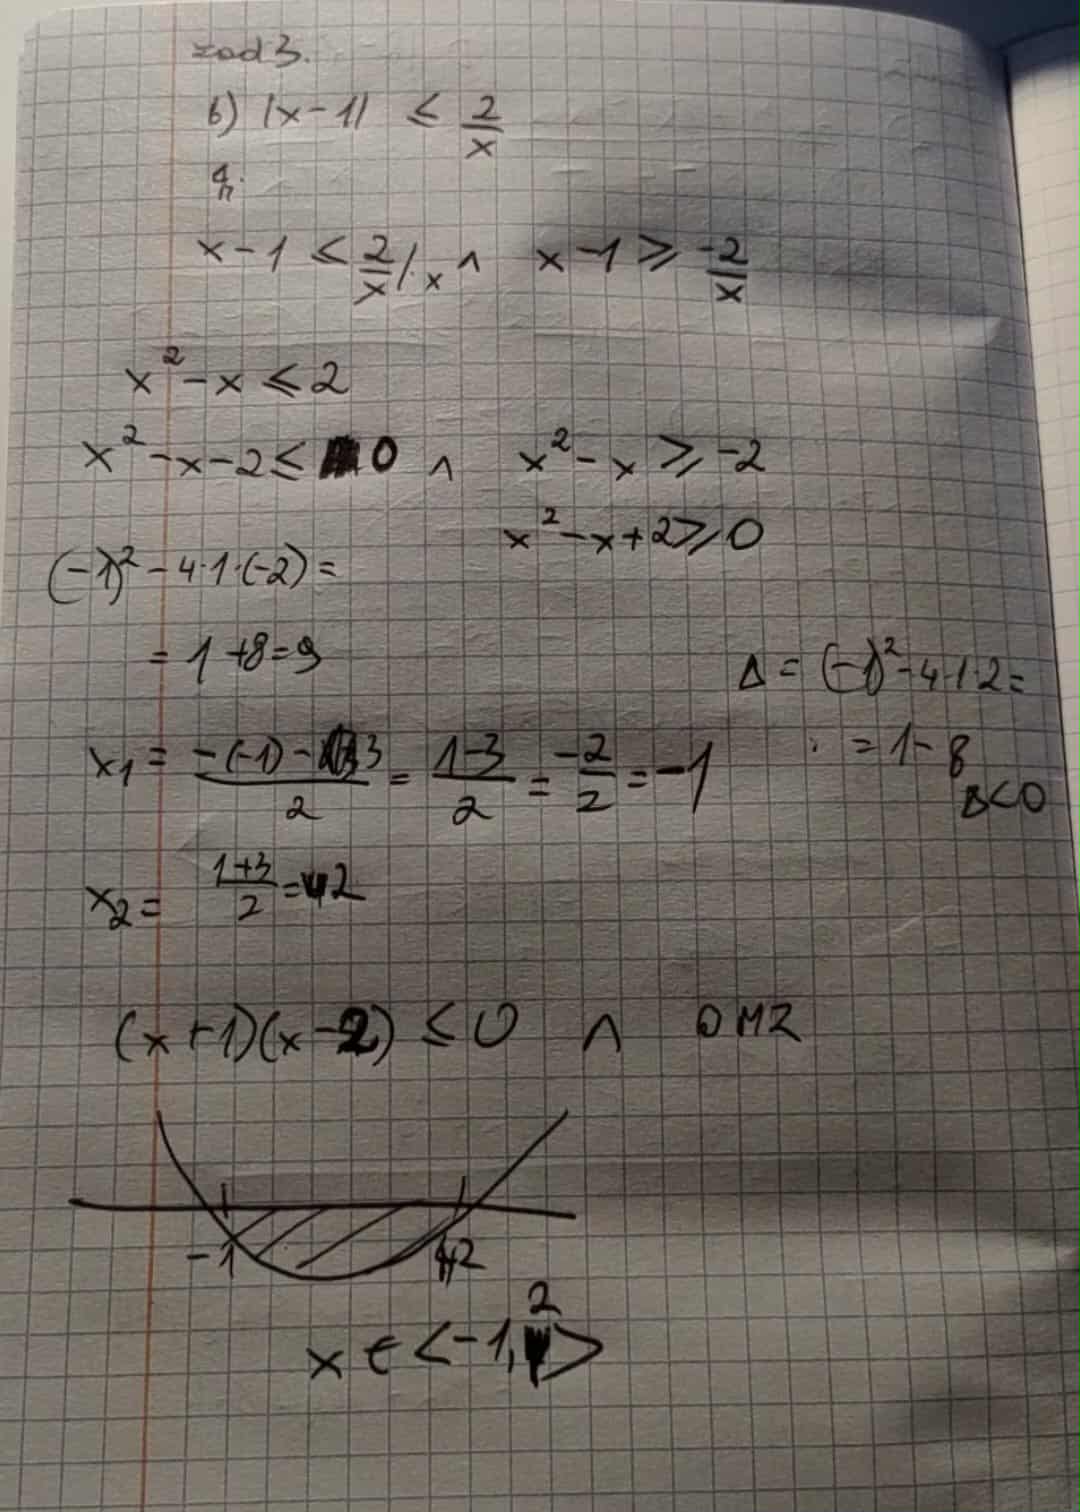 zad 3.
b) |x-1| ≤ 2/x
x-1 ≤ 2/x /·x ∧ x-1 ≥ -2/x
x² - x ≤ 2
x² - x - 2 ≤ 0 ∧ x² - x ≥ -2
x² - x + 2 ≥ 0
(-1)² - 4·1·(-2) =
= 1 + 8 = 9
Δ = (-1)² - 4·1·2 =
= 1 - 8
Δ < 0
x₁ = (-(-1) - 3)/2 = (1-3)/2 = -2/2 = -1
x₂ = (1+3)/2 = 2
(x+1)(x-2) ≤ 0 ∧
-1 2
x ∈ <-1, 2>